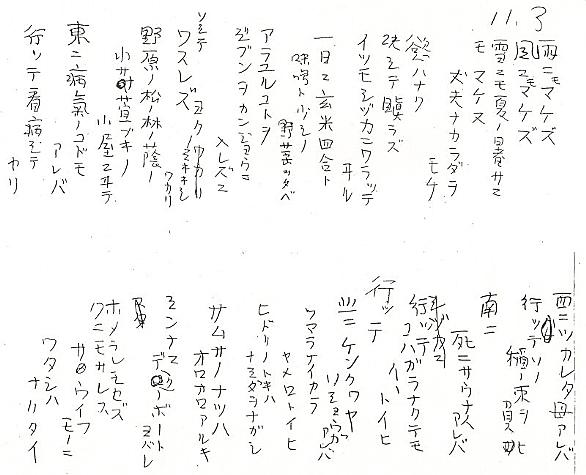 11.3
雨ニモマケズ
風ニモマケズ
雪ニモ夏ノ暑サニモ
マケヌ
丈夫ナカラダヲ
モチ
慾ハナク
決シテ瞋ラズ
イツモシヅカニワラッテ
ヰル
一日ニ玄米四合ト
味噌ト少シノ
野菜ヲタベ
アラユルコトヲ
ジブンヲカンジョウニ
入レズニ
ヨクミキキシ
ワカリ
ソシテ
ワスレズ
野原ノ松ノ林ノ蔭ノ
小サナ萓ブキノ
小屋ニヰテ
東ニ病氣ノコドモ
アレバ
行ッテ看病シテ
ヤリ
西ニツカレタ母アレバ
行ッテソノ
稲ノ束ヲ
負ヒ
南ニ
死ニサウナ人
アレバ
行ッテ
コハガラナクテモ
イヽトイヒ
北ニケンクヮヤ
ソショウガ
アレバ
ツマラナイカラ
ヤメロトイヒ
ヒドリノトキハ
ナミダヲナガシ
サムサノナツハ
オロオロアルキ
ミンナニ
デクノボートヨバレ
ホメラレモセズ
クニモサレズ
サウイフ
モノニ
ワタシハ
ナリタイ